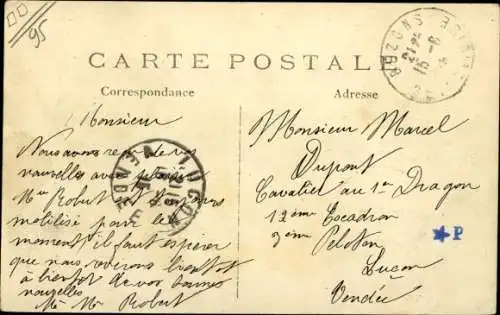 95
CARTE POSTALE
Correspondance
Adresse
Monsieur
Nous avons reçu de vos
nouvelles avec plaisir
Mr Robert est toujours
mobilisé pour le
moment il faut espérer
que nous reverrons bientôt
à bientôt de vos bonnes
nouvelles
Me Mr Robert
Monsieur Marcel
Dupont
Cavalier au 1er Dragon
12ème Escadron
3ème Peloton
Luçon
Vendée
P
LUÇON
VENDÉE